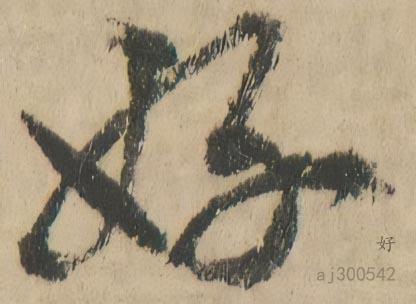 好
好
aj300542